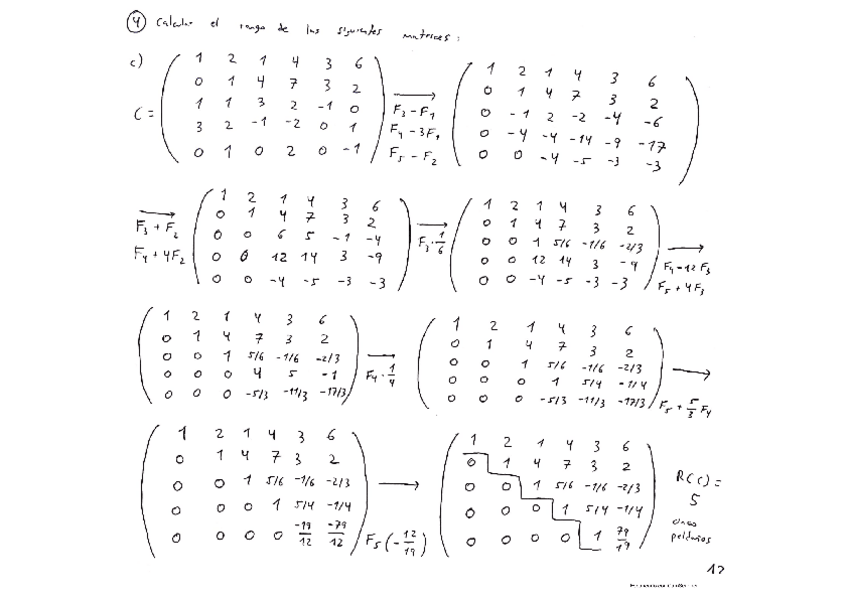 4 Calcular el rango de las siguientes matrices:
c)
C = ( 1 2 1 4 3 6
0 1 4 7 3 2
1 1 3 2 -1 0
3 2 -1 -2 0 1
0 1 0 2 0 -1 )
F3 - F1
F4 - 3F1
F5 - F2
( 1 2 1 4 3 6
0 1 4 7 3 2
0 -1 2 -2 -4 -6
0 -4 -4 -14 -9 -17
0 0 -4 -5 -3 -3 )
F3 + F2
F4 + 4F2
( 1 2 1 4 3 6
0 1 4 7 3 2
0 0 6 5 -1 -4
0 0 12 14 3 -9
0 0 -4 -5 -3 -3 )
F3 · 1/6
( 1 2 1 4 3 6
0 1 4 7 3 2
0 0 1 5/6 -1/6 -2/3
0 0 12 14 3 -9
0 0 -4 -5 -3 -3 )
F4 - 12F3
F5 + 4F3
( 1 2 1 4 3 6
0 1 4 7 3 2
0 0 1 5/6 -1/6 -2/3
0 0 0 4 5 -1
0 0 0 -5/3 -11/3 -17/3 )
F4 · 1/4
( 1 2 1 4 3 6
0 1 4 7 3 2
0 0 1 5/6 -1/6 -2/3
0 0 0 1 5/4 -1/4
0 0 0 -5/3 -11/3 -17/3 )
F5 + 5/3 F4
( 1 2 1 4 3 6
0 1 4 7 3 2
0 0 1 5/6 -1/6 -2/3
0 0 0 1 5/4 -1/4
0 0 0 0 -19/12 -79/12 )
F5 (-12/19)
( 1 2 1 4 3 6
0 1 4 7 3 2
0 0 1 5/6 -1/6 -2/3
0 0 0 1 5/4 -1/4
0 0 0 0 1 79/19 )
R(C) =
5
cinco
peldaños
12